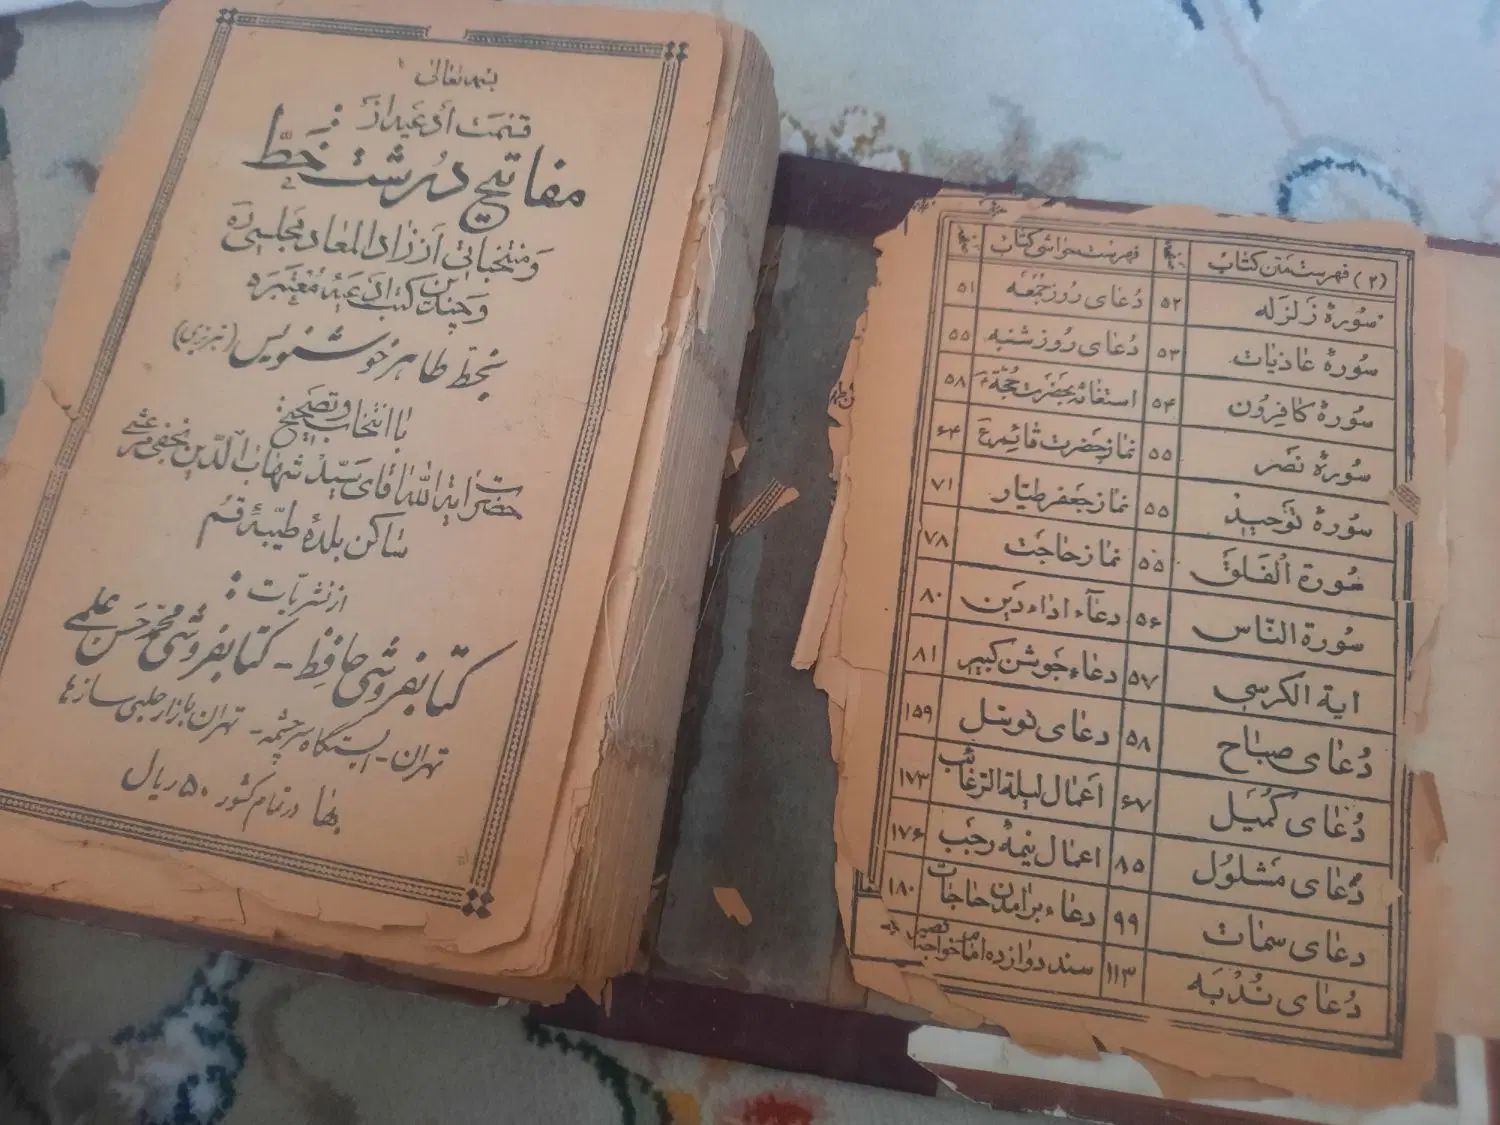 بسمه تعالی
قسمت أدعیه از
مفاتیح درشت خط
و منتخباتی از زاد المعاد مجلسی ره
و چندین کتب ادعیه معتبره
بخط طاهر خوشنویس (تبریزی)
با انتخاب و تصحیح
حضرت آیة الله اقای سید شهاب الدین نجفی مرعشی
ساکن بلدهٔ طیبهٔ قم
از نشریات :
کتابفروشی حافظ - کتابفروشی محمد حسن علمی
تهران - ایستگاه سرچشمه - تهران بازار حلبی سازها
بها در تمام کشور ۵۰ ریال
(۲) فهرست متن کتاب | فهرست حواشی کتاب
سورهٔ زلزله ۵۲ | دعای روز جمعه ۵۱
سورهٔ عادیات ۵۳ | دعای روز شنبه ۵۵
سورهٔ کافرون ۵۴ | استغاثه بحضرت حجّة ۵۸
سورهٔ نصر ۵۵ | نماز حضرت قائم ع ۶۴
سورهٔ توحید ۵۵ | نماز جعفر طیار ۷۱
سورة الفلق ۵۵ | نماز حاجت ۷۸
سورة النّاس ۵۶ | دعاء اداء دین ۸۰
ایة الکرسی ۵۷ | دعاء جوشن کبیر ۸۱
دُعای صباح ۵۸ | دعای توسل ۱۵۹
دُعای کمیل ۶۷ | اعمال لیلة الرغائب ۱۷۳
دُعای مشلول ۸۵ | اعمال نیمهٔ رجب ۱۷۶
دعای سمات ۹۹ | دعاء برامدن حاجات ۱۸۰
دُعای ندبه ۱۱۳ | سند دوازده امام خواجه نصیر